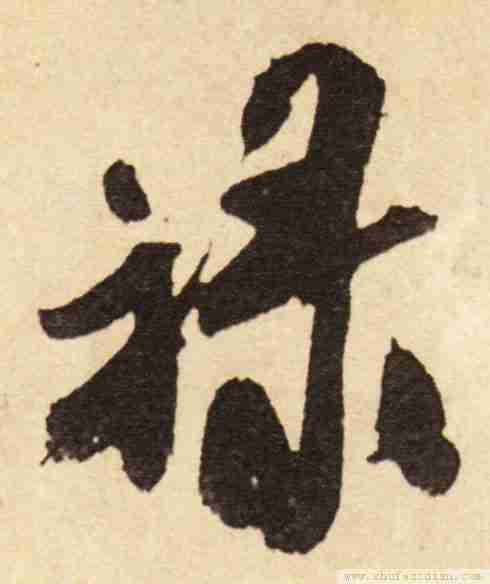 祿
www.shufazidian.com